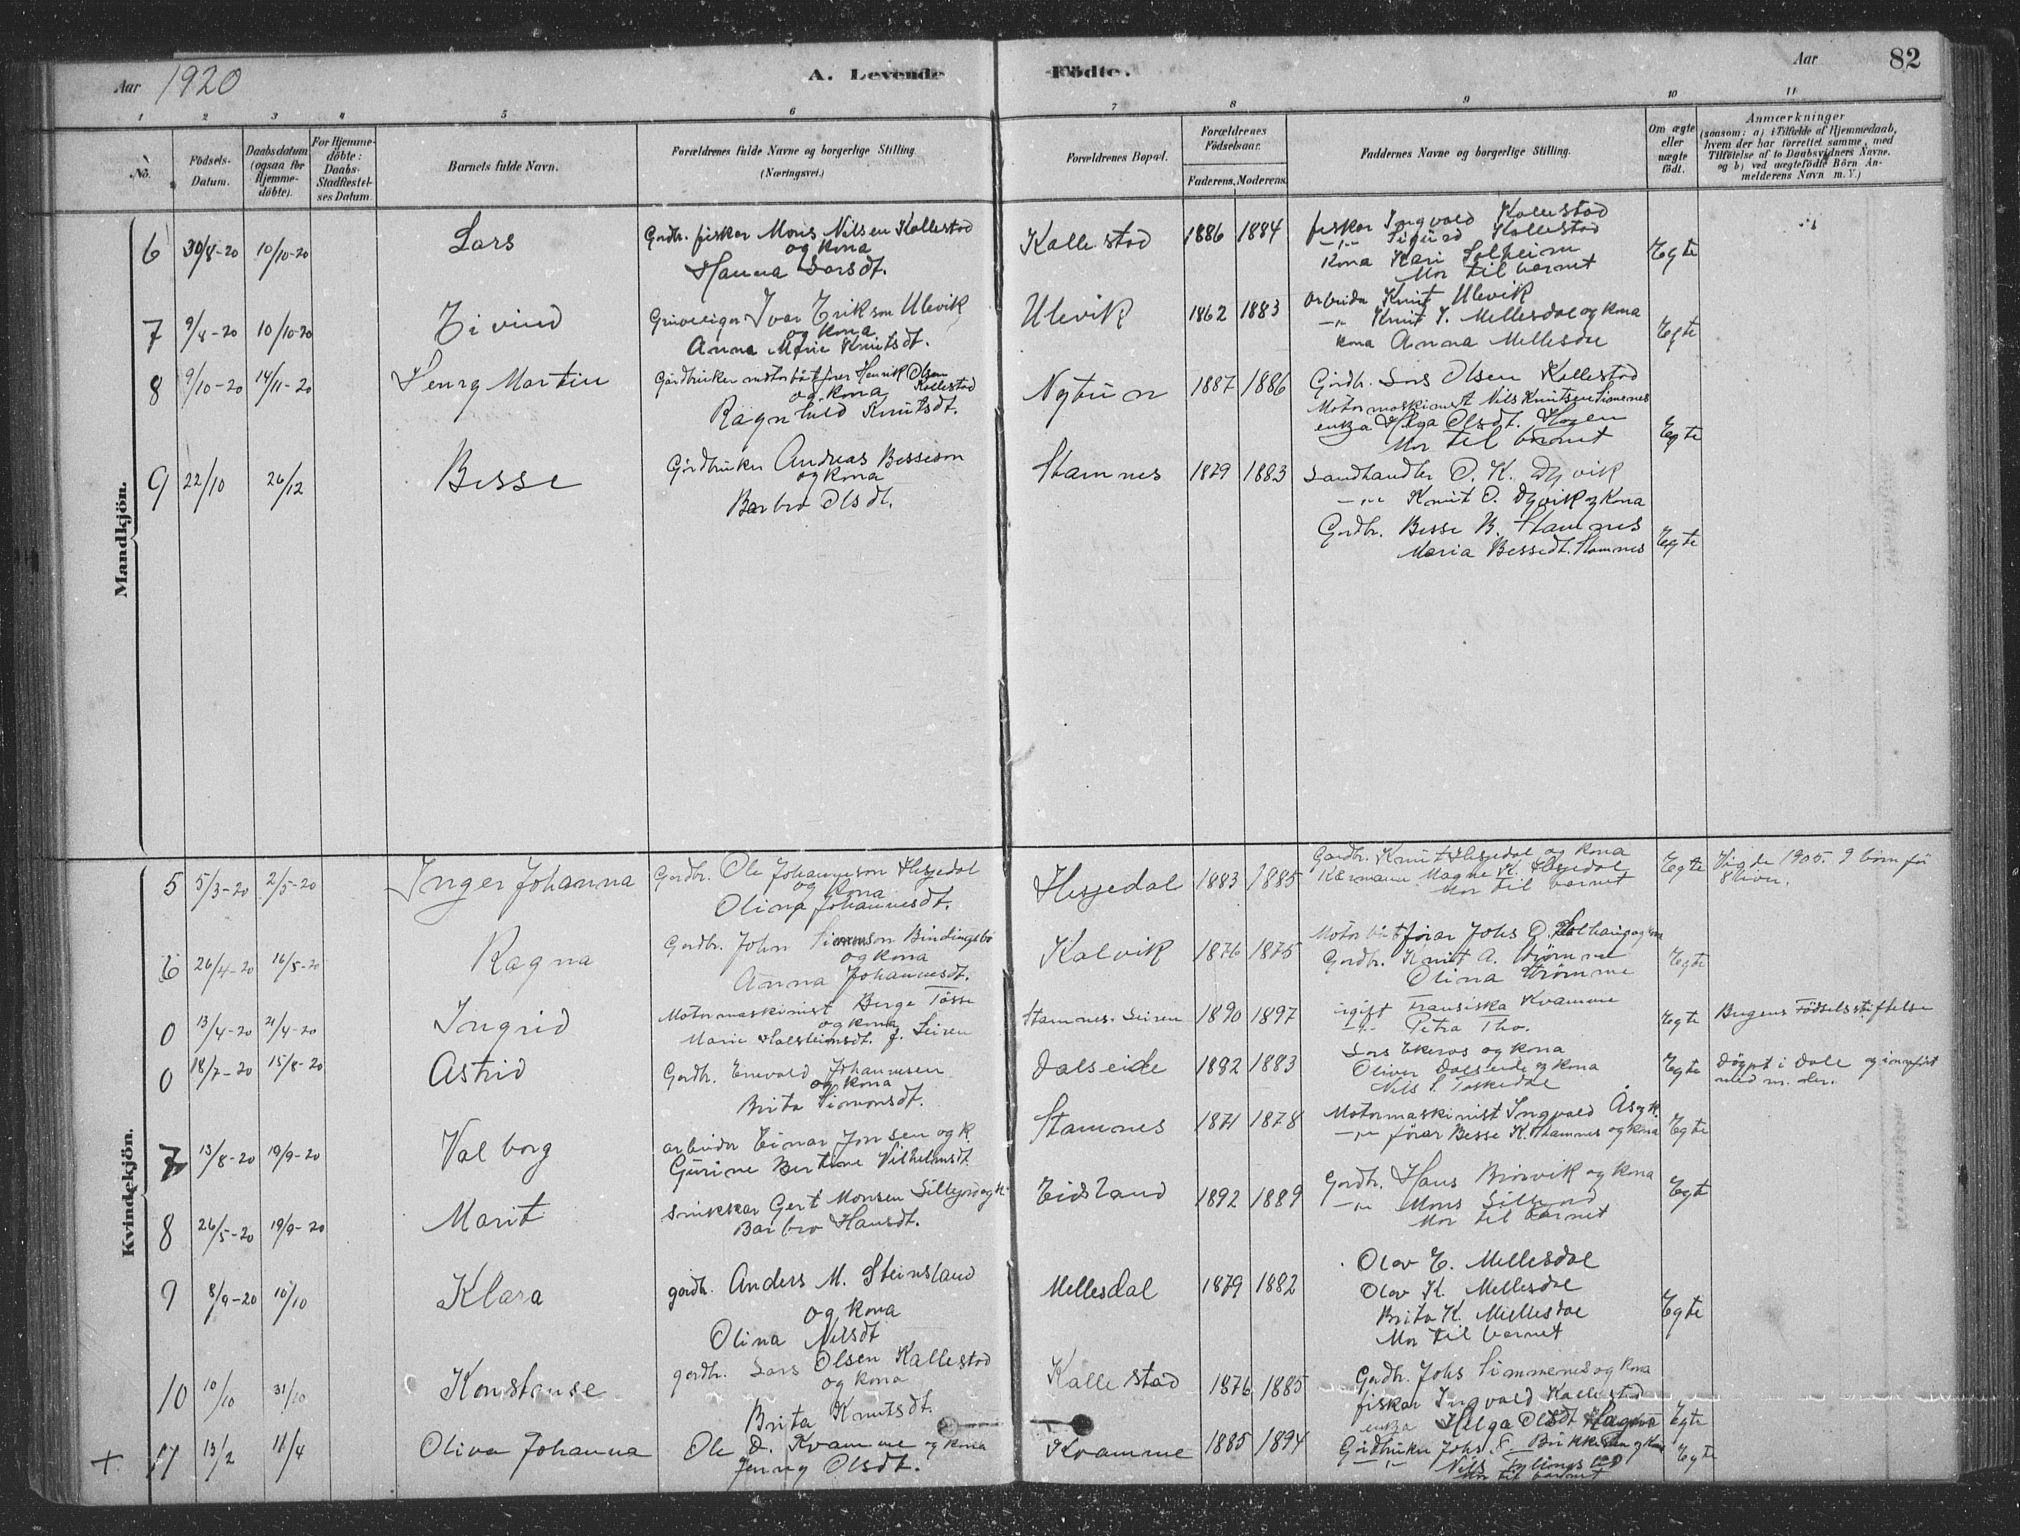 Aar 1920
A. Levende Födte.
Aar 82
1 2 3 4 5 6 7 8 9 10 11
No.
Födsels-Datum.
Daabsdatum (ogsaa for Hjemme-döbte).
For Hjemme-döbte: Daabs-Stadfæstel-ses Datum.
Barnets fulde Navn.
Forældrenes fulde Navne og borgerlige Stilling.
(Næringsvei.)
Forældrenes Bopæl.
Forældrenes Födselsaar.
Faderens. Moderens.
Faddernes Navne og borgerlige Stilling.
Om ægte eller uægte födt.
Anmærkninger
(saasom: a) i Tilfælde af Hjemmedaab, hvem der har forrettet samme, med Tilföielse af to Daabsvidners Navne. og b) ved uægtefödte Börn An-melderens Navn m. V.)
Mandkjön.
6 30/8-20 10/10-20 Lars
Gardbr. fisker Mons Nilsen Kallestad
og kona
Hanna Larsdt.
Kallestad 1886 1884
fisker Ingvald Kallestad
-"- Sigurd Kallestad
Kona Kari Solheim
Mor til barnet
Egte
7 9/8-20 10/10-20 Eivind
Ivar Erikson Ulevik
og kona
Anna Marie Knutsdt.
Ulevik 1862 1883
arbeida Knut Ulevik
-"- Knut I. Mellesdal og kona
kona Anna Mellesdal
Egte
8 9/10-20 14/11-20 Henry Martin
Gårdbruker motorbåtförer Henrik Olsen Kallestad
og kona
Ragnhild Knutsdt.
Nybun 1887 1886
Gardbr. Lars Olsen Kallestad
Motormaskinist Nils Knutsen Simenes
enkja Helga Olsdt.
Mor til barnet
Egte
9 22/10 26/12 Besse
Gårdbruker Andreas Besseson
og kona
Barbro Olsdt.
Stamnes 1879 1883
Landhandler O. K. Dyvik
-"- Knut O. Dyvik og kona
Gardbr. Besse B. Stamnes
Maria Bessedt. Stamnes
Egte
Kvindekjön.
5 5/3-20 2/5-20 Inger Johanna
Gardbr. Ole Johanneson Hesjedal
og kona
Olina Johannesdt.
Hesjedal 1883 1885
Gardbr. Knut Hesjedal og kona
Magne K. Hesjedal
Mor til barnet
Egte
Vigde 1905. 9 born fö
8 liver.
6 26/4-20 16/5-20 Ragna
Gardbr. John Simonson Bindingsbö
og kona
Anna Johannesdt.
Kalvik 1876 1875
Motorbåtförar Johs O. Solhaug og kona
Gardbr. Knut A. Strømme
Olina Strømme
Egte
0 13/4-20 21/4-20 Ingrid
Motormaskinist Berge Tösse
og kona
Marie Halsteinsdt. f. Seiren
Stamnes. Seiren 1890 1897
ugift Fransiska Kvamme
-"- Petra Tho.
Egte
Bergens Födselsstiftelse
0 18/7-20 15/8-20 Astrid
Gardbr. Enevald Johannesen
og kona
Brita Simonsdt.
Dalseide 1892 1883
Lars Ekeros og kona
Oliver Dalseide og kona
Nils S. Toskedal
Egte
Döypt i Dale og innfört
med nr. der.
7 13/8-20 19/9-20 Valborg
arbeider Einar Jonsen og k.
Gurine Bertine Vilhelmsdt.
Stamnes 1871 1878
Motormaskinist Ingvald Ås og k.
-"- förar Besse K. Stamnes og kona
Egte
8 26/5-20 19/9-20 Marit
snikkar Gert Monsen Sillejord og k.
Barbro Hansdt.
Eidsland 1892 1889
Gardbr. Hans Brørvik og kona
-"- Mons Sillejord
Mor til barnet
Egte
9 8/9-20 10/10 Klara
gardbr. Anders M. Steinsland
og kona
Olina Nilsdt
Mellesdal 1879 1882
Olav E. Mellesdal
Olav K. Mellesdal
Brita K. Mellesdal
Mor til barnet
Egte
10 10/10 31/10 Konstanse
gardbr. Lars Olsen Kallestad
og kona
Brita Knutsdt.
Kallestad 1876 1885
Gardbr. Johs Simmenes og kona
fisker Ingvald Kallestad
enkja Helga Olsdt
Egte
+ 11 13/2 11/4 Oliva Johanna
Ole O. Kvamme og kona
Jenny Olsdt.
Kvamme 1885 1894
Gårdbruker Johs.
-"- Nils
Mor til barnet
Egte